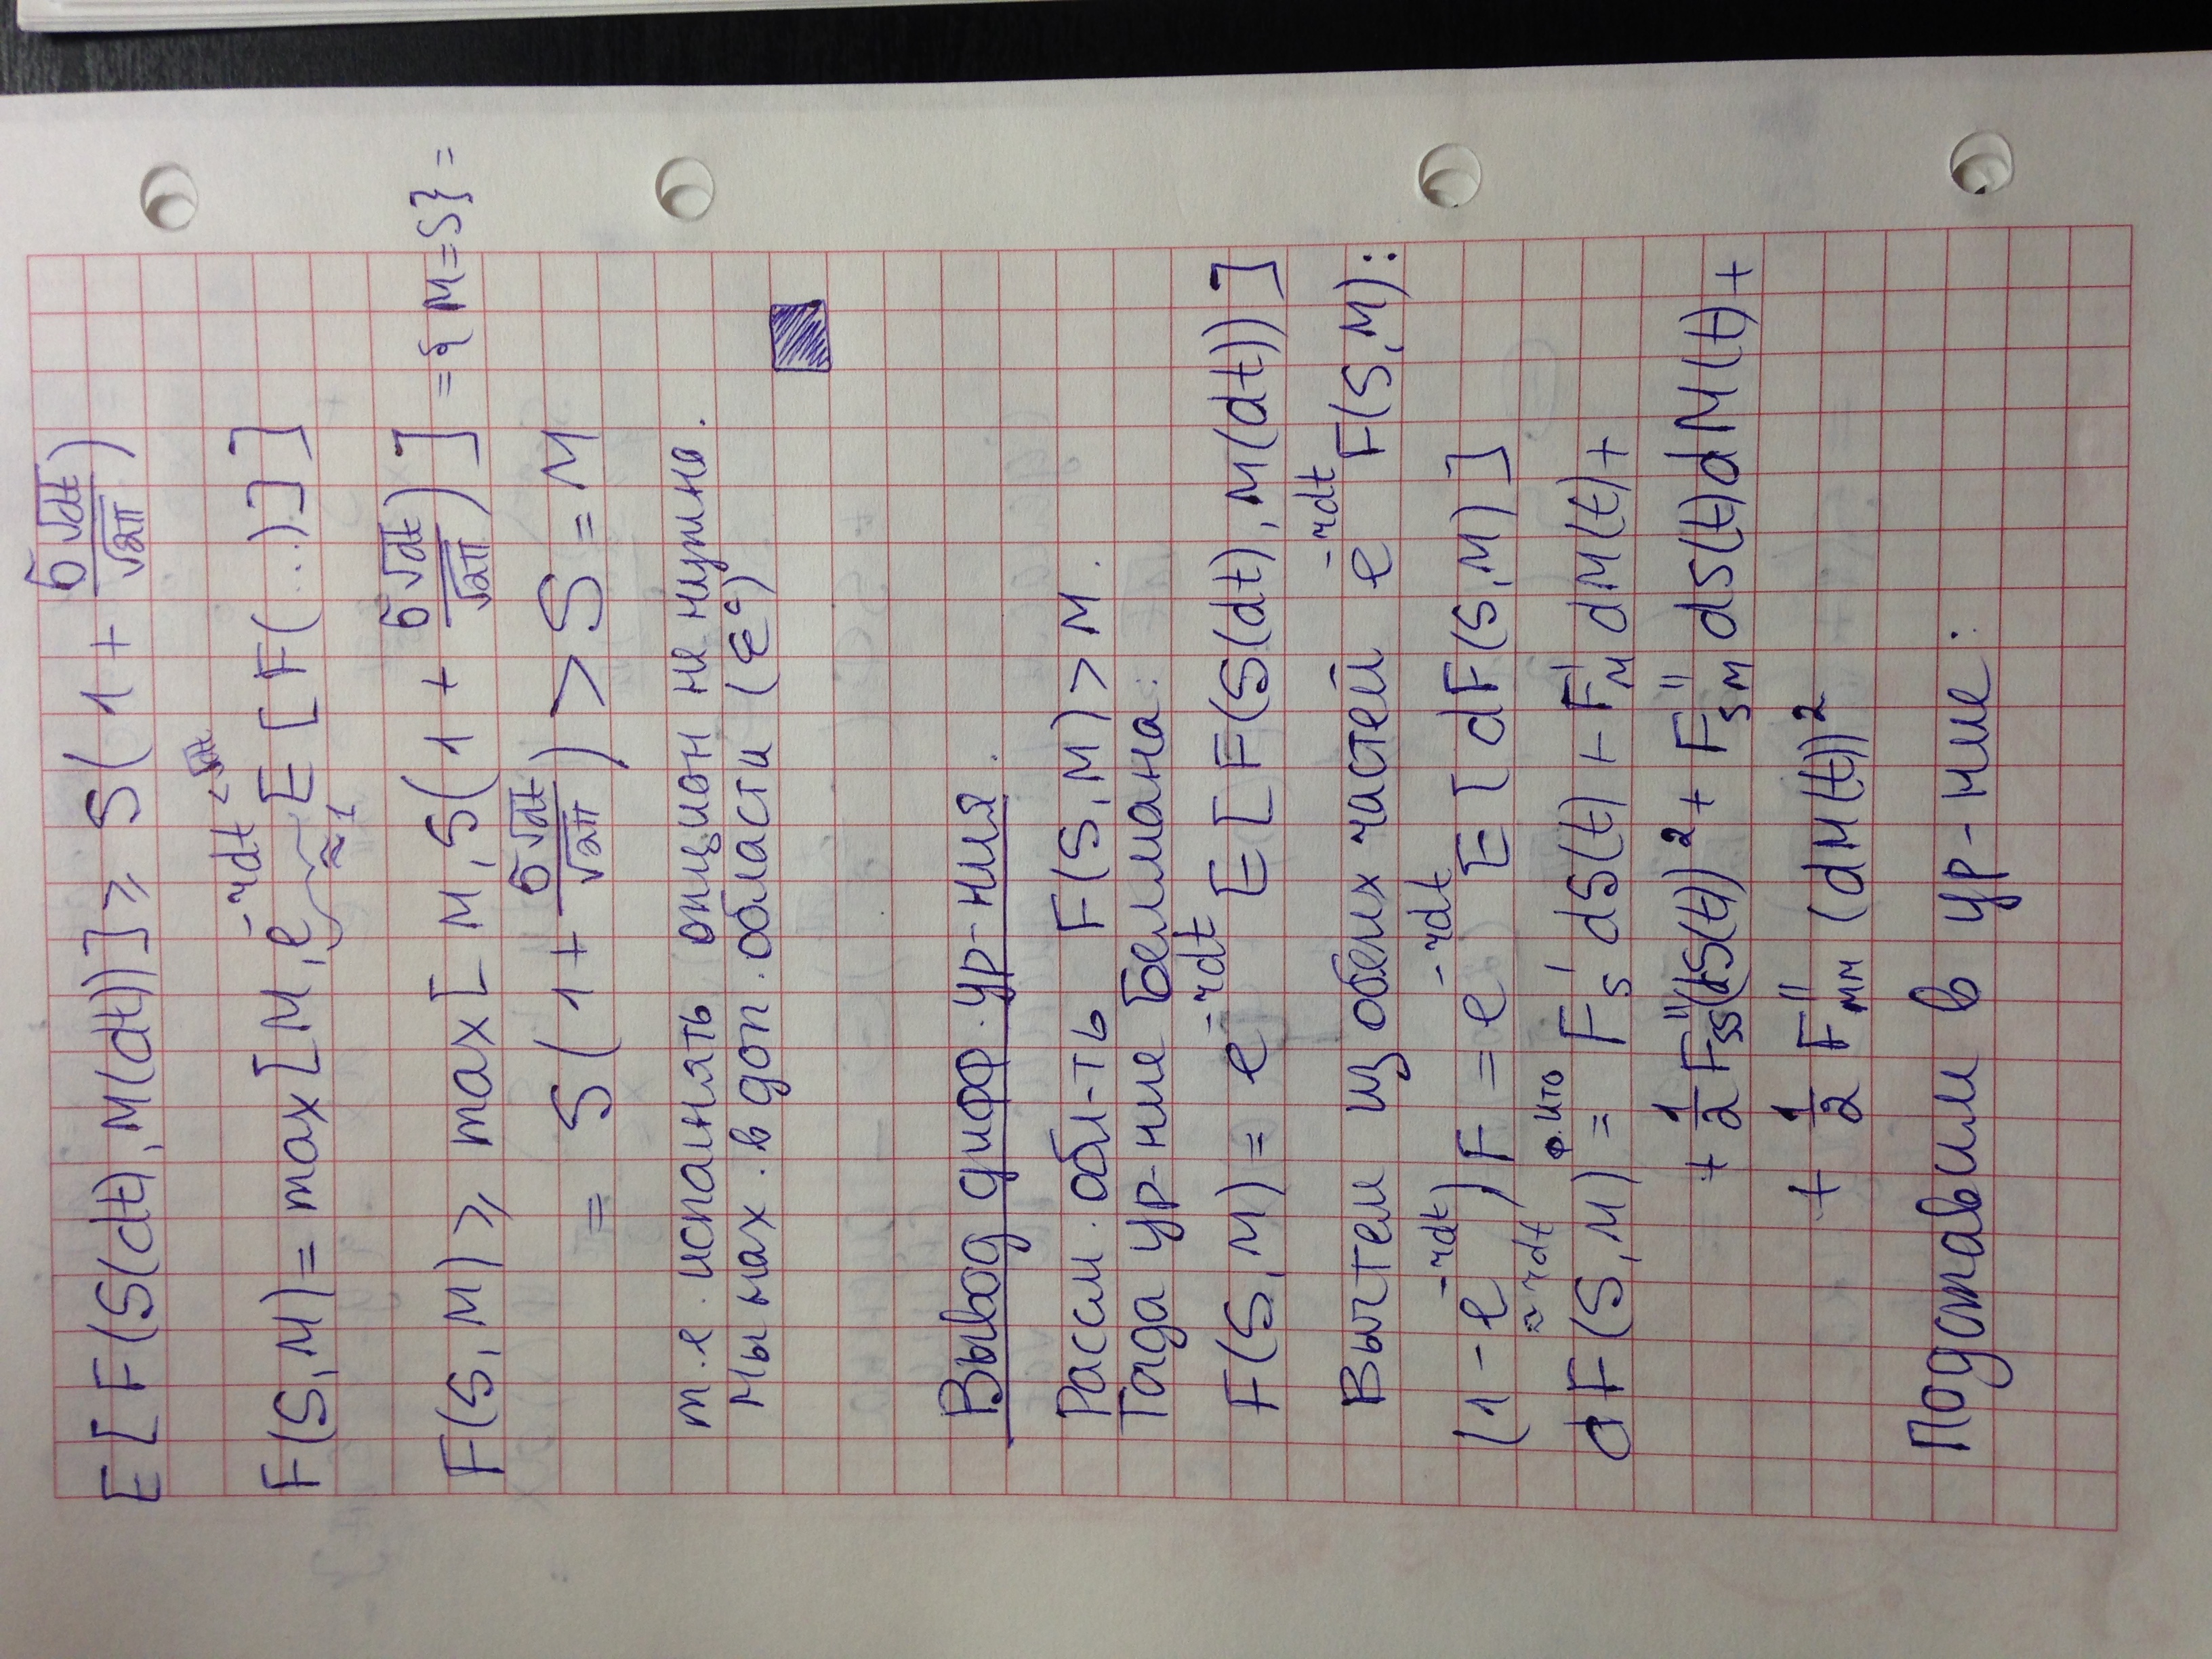 E[F(S(dt), M(dt))] ≥ S(1 + σ√dt/√2π)
F(S,M) = max[M, e^{-rdt} E[F(...)]]
≈1
F(S,M) ≥ max[M, S(1 + σ√dt/√2π)] = {M=S} =
= S(1 + σ√dt/√2π) > S = M
т.е. исполнять опцион не нужно.
Мы нах. в доп. области (ℰᶜ)
Вывод дифф. ур-ния.
Рассм. обл-ть F(S,M) > M.
Тогда ур-ние Беллмана:
F(S,M) = e^{-rdt} E[F(S(dt), M(dt))]
Вычтем из обеих частей e^{-rdt} F(S,M):
(1 - e^{-rdt})F = e^{-rdt} E[dF(S,M)]
≈ rdt
ф. Ито
dF(S,M) = F'_S dS(t) + F'_M dM(t) +
+ 1/2 F''_{SS}(dS(t))² + F''_{SM} dS(t)dM(t) +
+ 1/2 F''_{MM} (dM(t))²
Подставим в ур-ние: